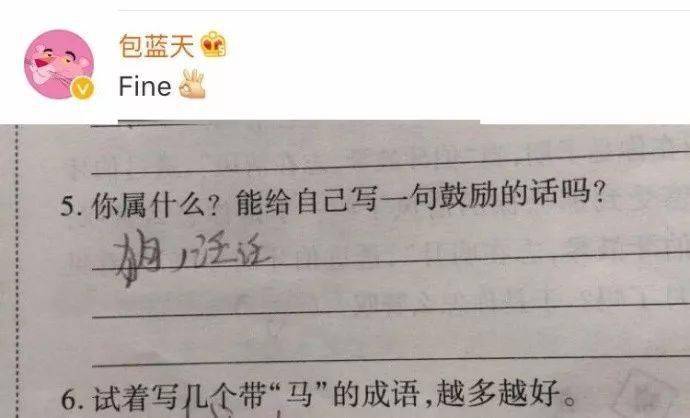 包蓝天
Fine👌
5. 你属什么？能给自己写一句鼓励的话吗？
，汪汪
6. 试着写几个带“马”的成语，越多越好。